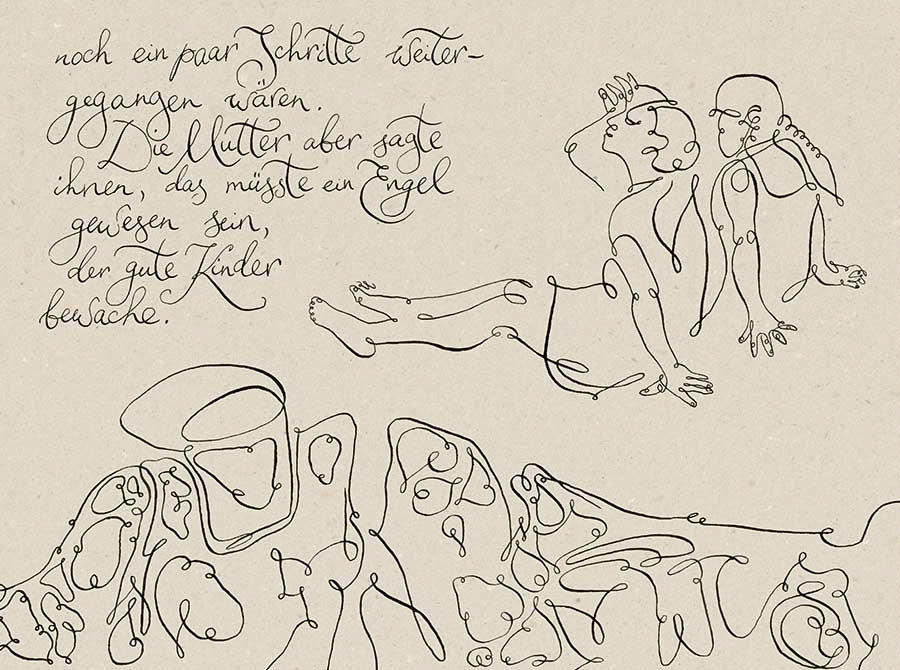 noch ein paar Schritte weiter-
gegangen wären.
Die Mutter aber sagte
ihnen, das müsste ein Engel
gewesen sein,
der gute Kinder
bewache.